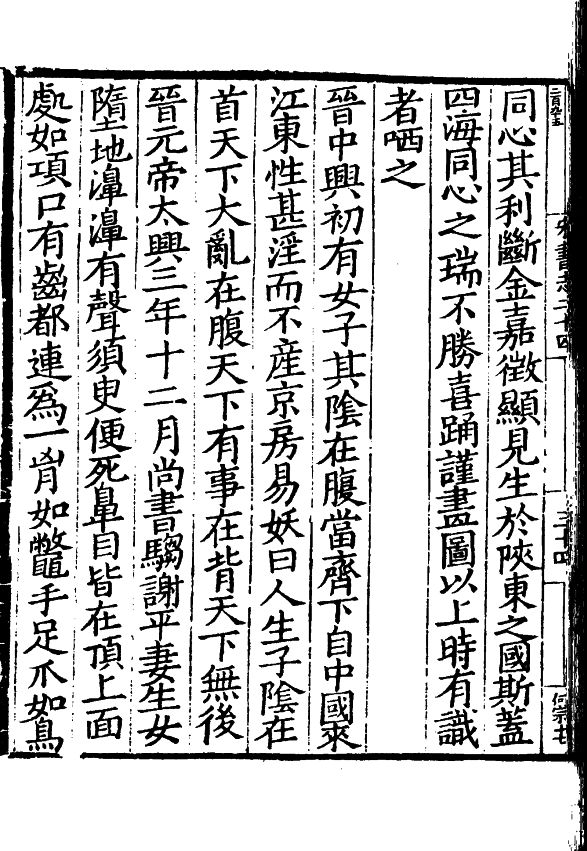 宋書志二十四
三十四
同心其利斷金嘉徵顯見生於陝東之國斯蓋
四海同心之瑞不勝喜踊謹畫圖以上時有識
者哂之
晉中興初有女子其陰在腹當齊下自中國來
江東性甚淫而不産京房易妖曰人生子陰在
首天下大亂在腹天下有事在背天下無後
晉元帝太興三年十二月尚書騶謝平妻生女
墮地濞濞有聲須臾便死鼻目皆在頂上面
處如項口有齒都連爲一胷如鼈手足爪如鳥